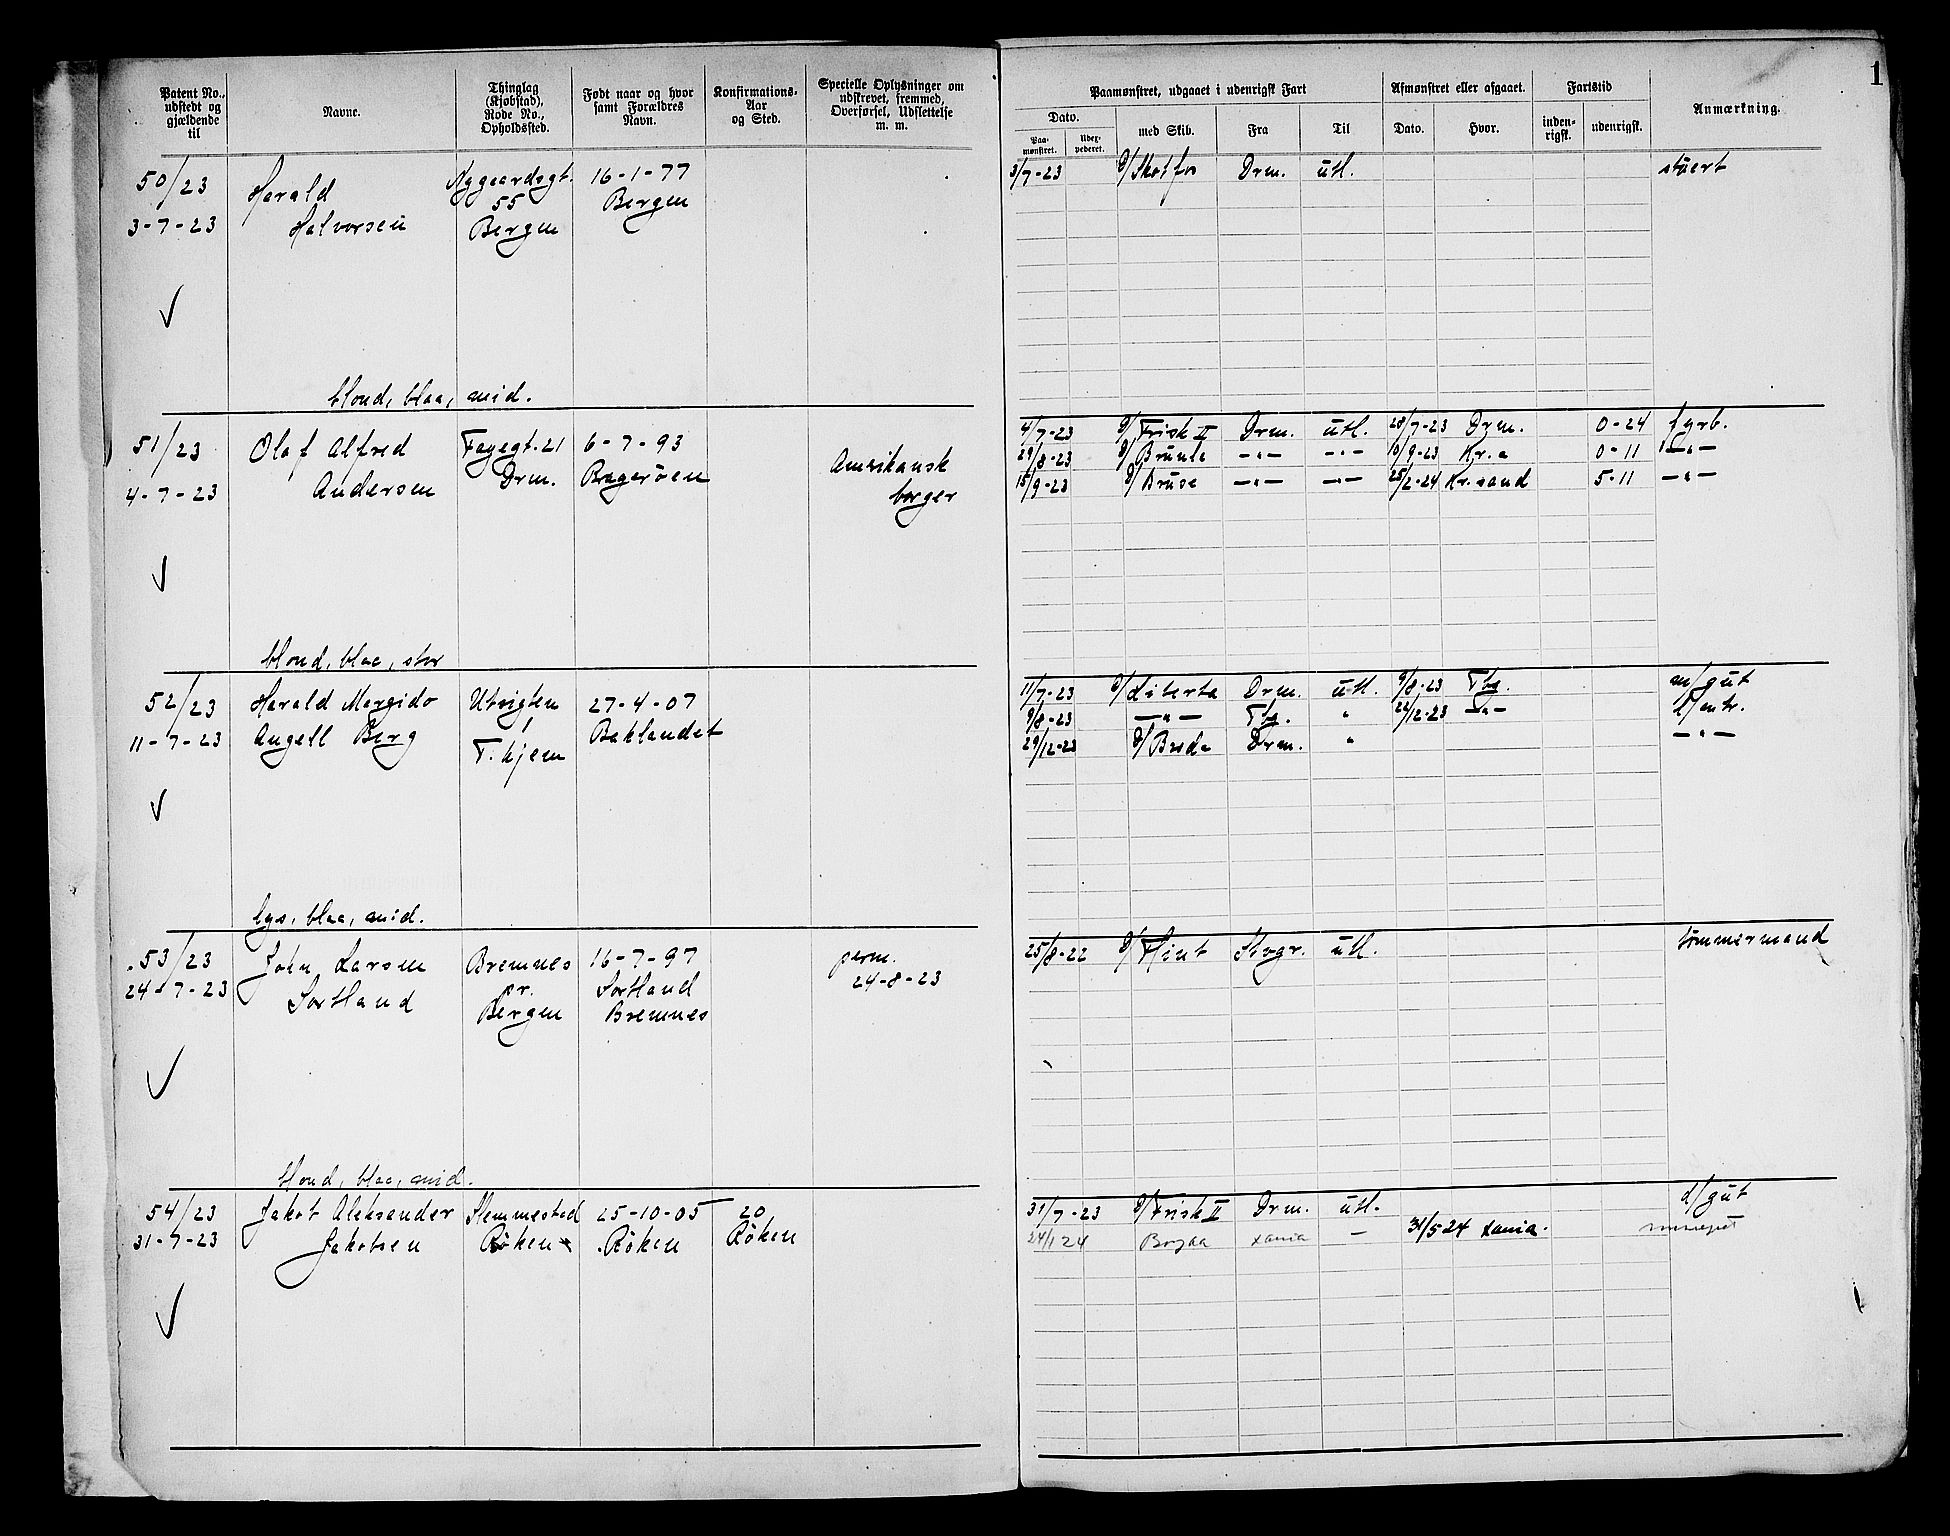 1
Patent No., udstedt og gjældende til
Navne.
Thinglag (Kjøbstad), Rode No., Opholdssted.
Født naar og hvor samt Forældres Navn.
Konfirmations-Aar og Sted.
Specielle Oplysninger om udskrevet, fremmed, Overførsel, Udslettelse m. m.
Paamønstret, udgaaet i udenrigsk Fart
Dato.
Paa-mønstret.
Udex-pederet.
med Skib.
Fra
Til
Afmønstret eller afgaaet.
Dato.
Hvor.
Fartstid
inden-rigsk.
udenrigsk.
Anmærkning.
50/23 Harald Nygaardsgt. 16-1-77 3/7-23 D/ Skotfos Drm. utl. stuert
3-7-23 Halvorsen 55 Bergen
Bergen
blond, blaa, mid.
51/23 Olaf Alfred Fayegt. 21 6-7-93 4/7-23 D/ Frisk II Drm. utl. 28/7-23 Drm. 0-24 fyrb.
4-7-23 Andersen Drm. Bragerøen Amerikansk borger 29/8-23 D/ Brunla —"— —"— 10/9-23 Kr.a 0-11 —"—
15/9-23 D/ Bruse —"— —"— 25/2-24 Kr.sand 5-11 —"—
blond, blaa, stor
52/23 Harald Margido Utsigten 27-4-07 11/7-23 D/ Liberta Drm. utl. 9/8-23 Tbg. m/gut
11-7-23 Angell Berg 1 Baklandet 9/8-23 —"— Tbg. " 22/12-23 —"— l/mtr.
T.hjem 29/12-23 D/ Breda Drm. " —"—
lys, blaa, mid.
53/23 John Larsen Bremnes 16-7-97 perm. 25/8-22 D/ Flint Stvgr. utl. tømmermand
24-7-23 Sortland pr. Sortland 24-8-23
Bergen Bremnes
blond, blaa, mid.
54/23 Jakob Aleksander Slemmestad 25-10-05 20 31/7-23 D/ Frisk II Drm. utl. d/gut
31-7-23 Jakobsen Røken Røken Røken 24/1 24 xania — 31/5 24 xania.